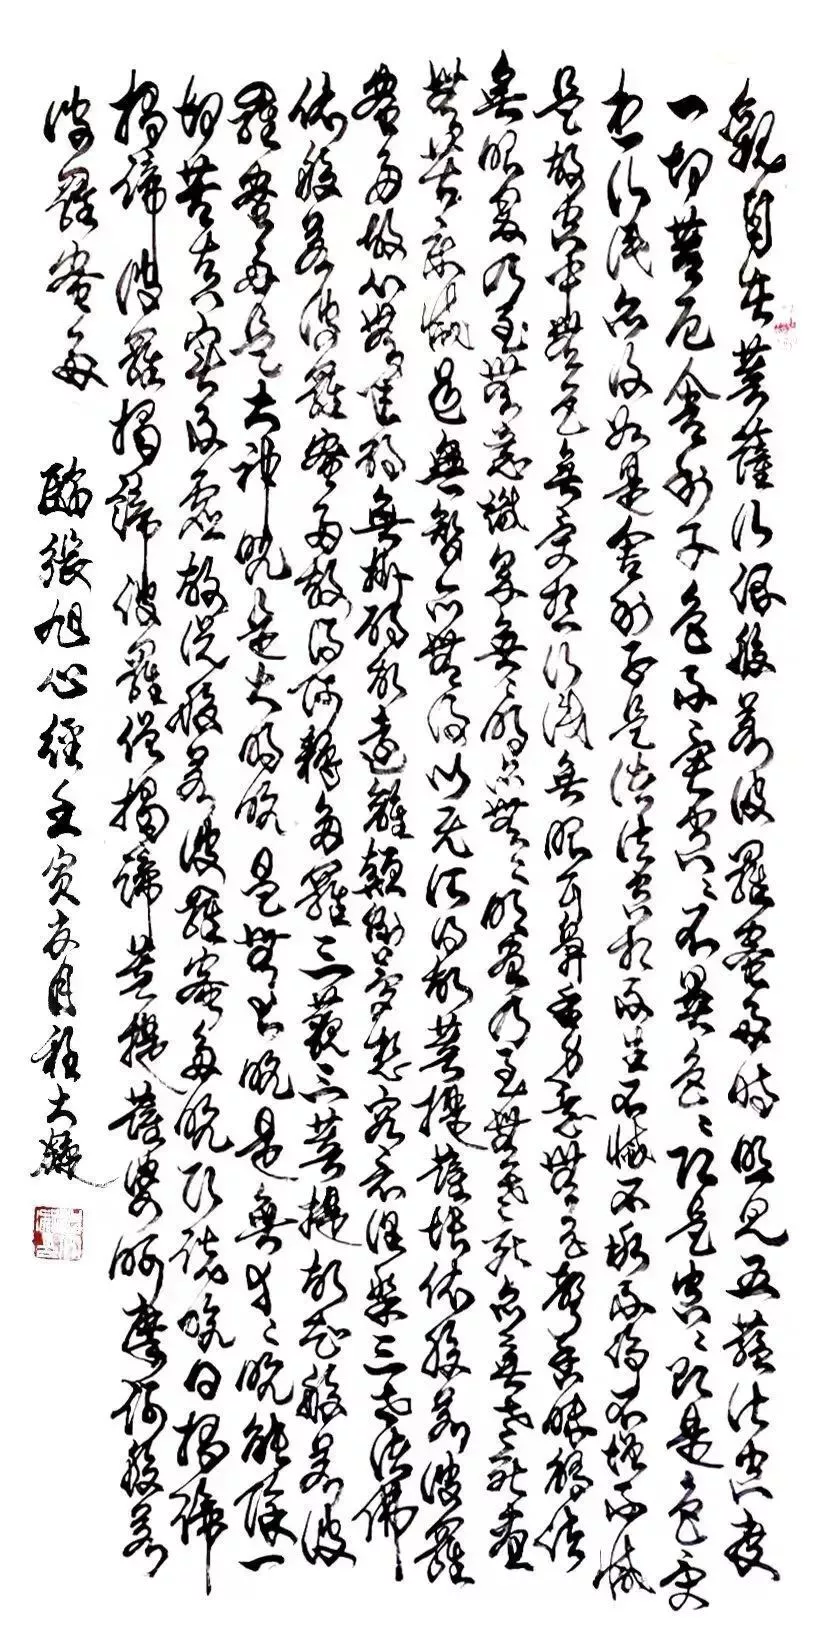 觀自在菩薩行深般若波羅蜜多時照見五蘊皆空度
一切苦厄舍利子色不異空〻不異色〻即是空〻即是色受
想行識亦復如是舍利子是諸法空相不生不滅不垢不淨不增不減
是故空中無色無受想行識無眼耳鼻舌身意無色聲香味觸法
無眼界乃至無意識界無〻明亦無〻明盡乃至無老死亦無老死盡
無苦集滅道無智亦無得以无所得故菩提薩埵依般若波羅
蜜多故心無罣礙無罣礙故遠離顛倒夢想究竟涅槃三世諸佛
依般若波羅蜜多故得阿耨多羅三藐三菩提故知般若波
羅蜜多是大神咒是大明咒是無上咒是無等〻咒能除一
切苦真實不虛故說般若波羅蜜多咒即說咒曰揭諦
揭諦波羅揭諦波羅僧揭諦菩提薩婆訶摩訶般若
波羅蜜多
臨張旭心經壬寅月程大